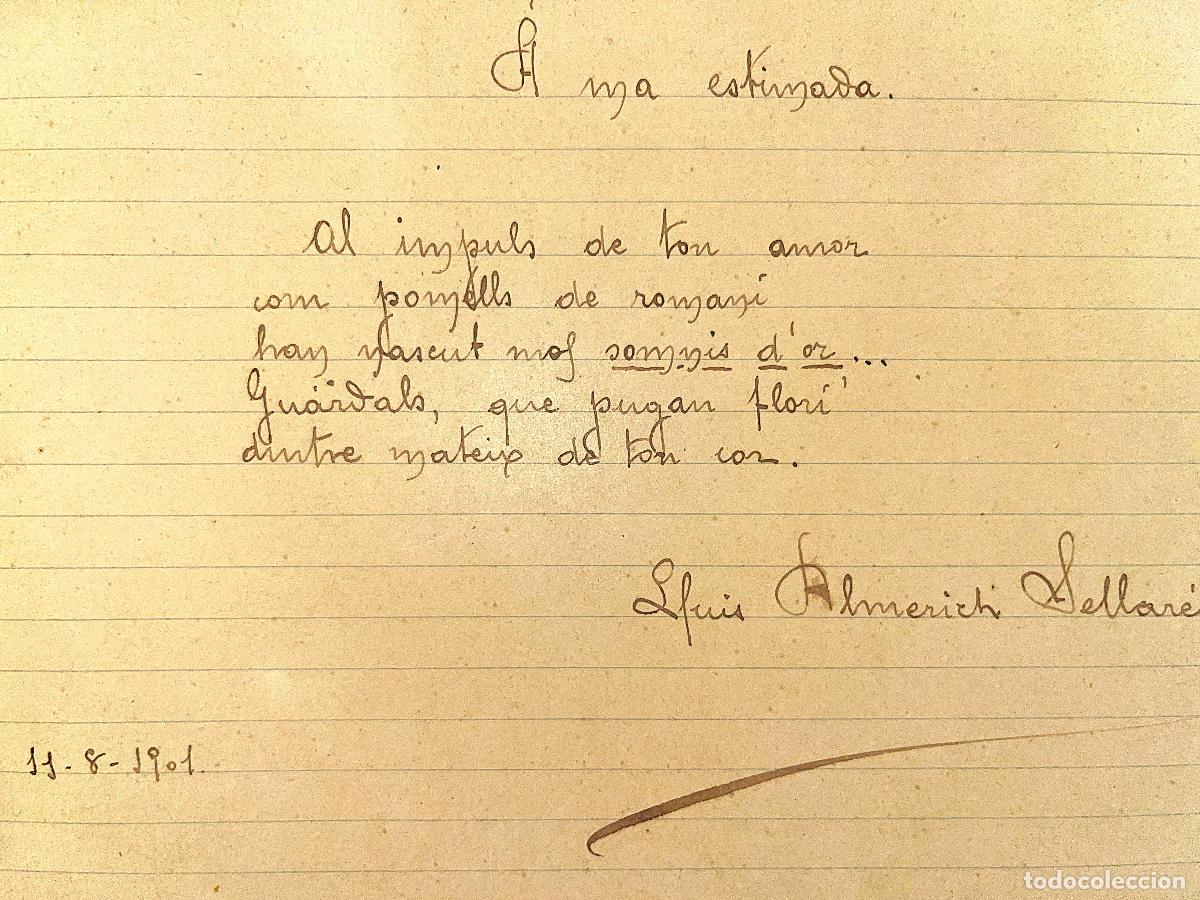 Á ma estimada.
Al impuls de ton amor
com pomells de romaní
han nascut mos somnis d'or...
Guárdals, que pugan florí'
dintre mateix de ton cor.
Lluis Almerich Sellaré
11-8-1901.
todocoleccion